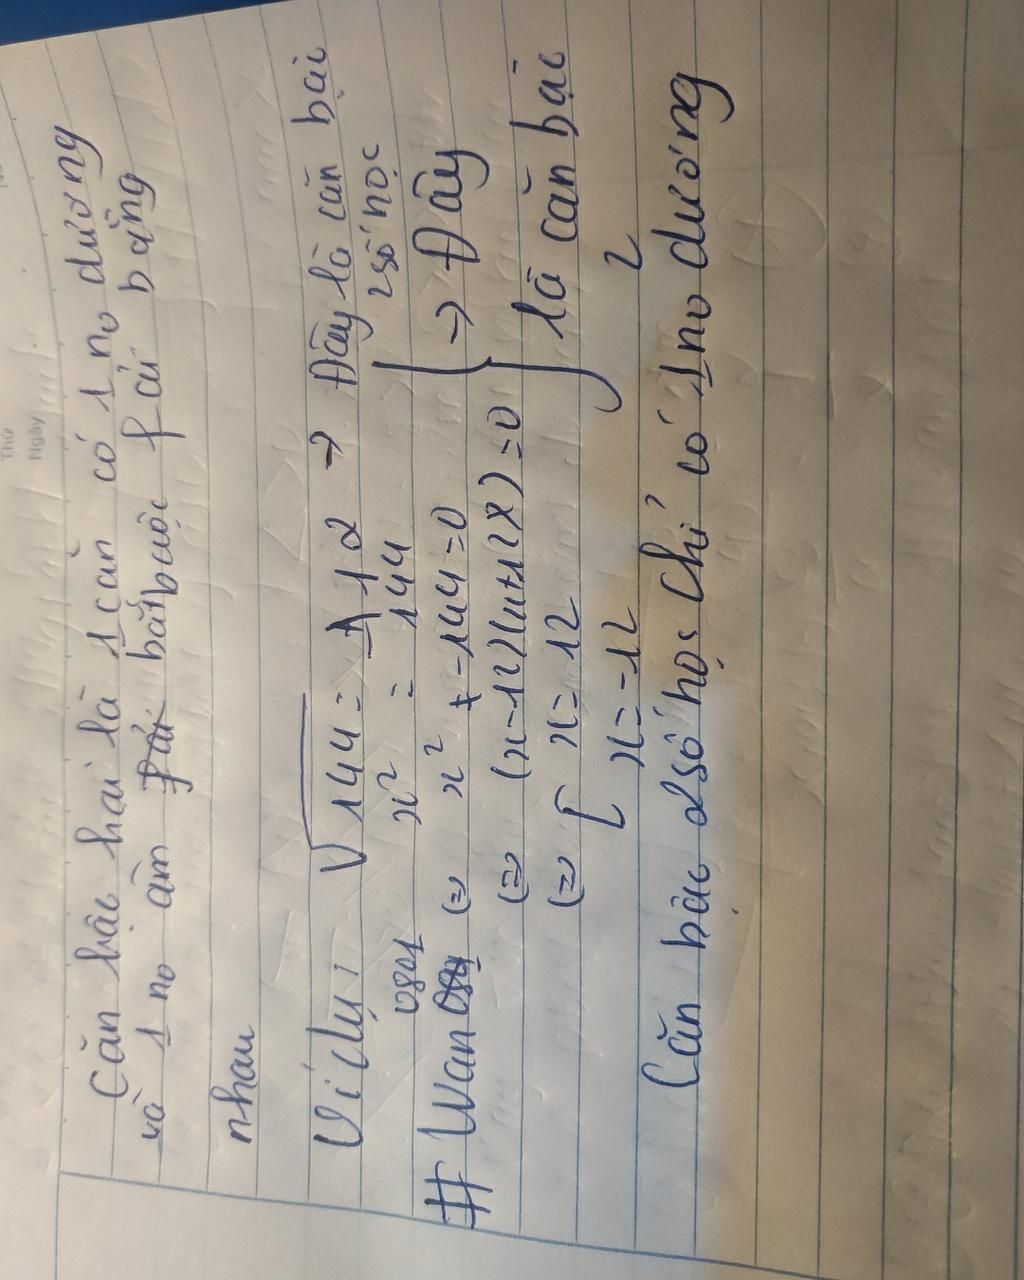 Thứ
Ngày
Căn bậc hai là 1 căn có 1 no dương
và 1 no âm bắt buộc fải bằng
nhau
Ví dụ: √144 = 12 → Đây là căn bậc
2 số học
x² = 144
0801
#Wan (=) x² - 144 = 0 → Đây
(=) (x-12)(x+12) = 0 là căn bậc
(=) [ x = 12 2
x = -12
Căn bậc 2 số học chỉ có 1 no dương